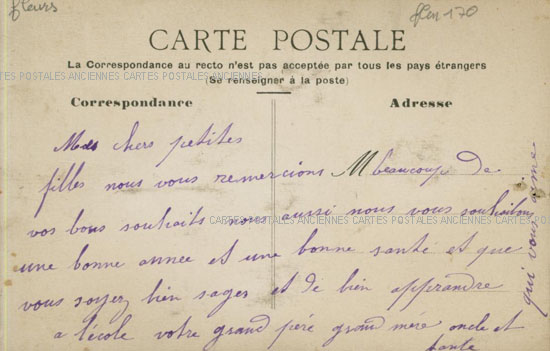 fleurs
flen 170
CARTE POSTALE
La Correspondance au recto n'est pas acceptée par tous les pays étrangers
(Se renseigner à la poste)
CARTES POSTALES ANCIENNES CARTES POSTALES ANCIENNES
Correspondance
Adresse
Mes chers petites
filles nous vous remercions M beaucoup de
vos bous souhaits nous aussi nous vous souhaitons
CARTES POSTALES ANCIENNES CARTES POSTALES ANCIENNES
une bonne annee et une bonne santé et que
vous soyez bien sages et de bien apprendre
a l'école votre grand péré grand mére oncle et
tante
qui vous aime